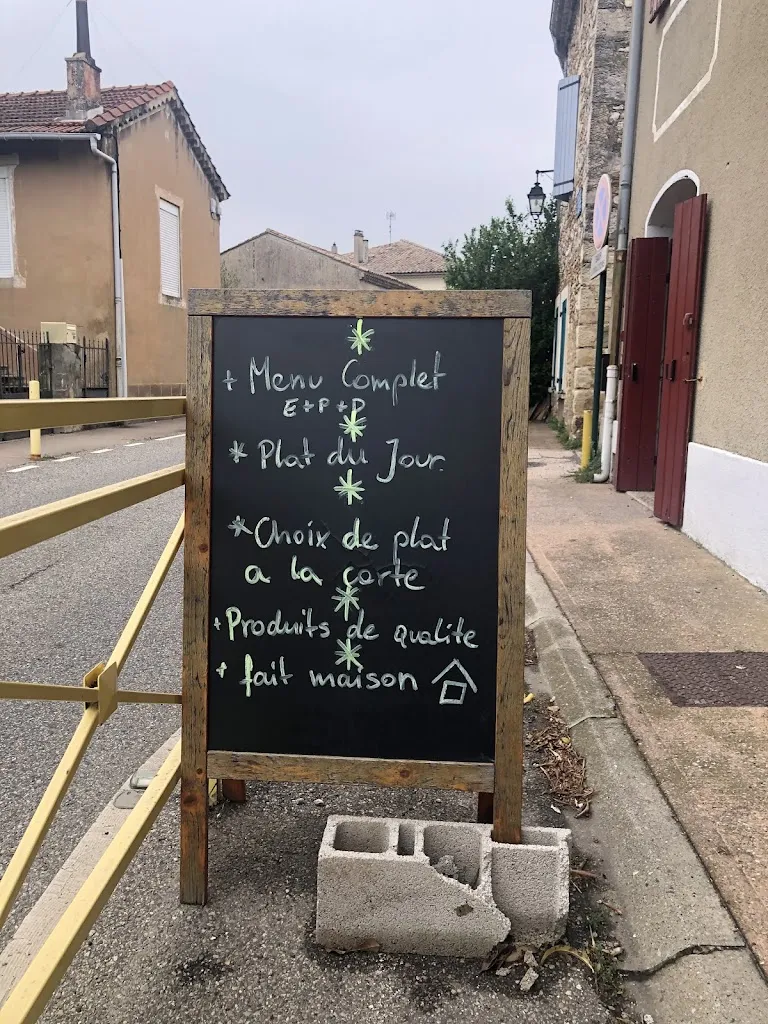 + Menu Complet
E+P+D
* Plat du Jour
* Choix de plat
a la carte
+ Produits de qualite
+ fait maison